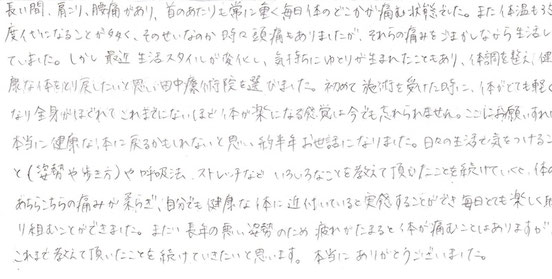 長い間、肩こり、腰痛があり、首のあたりも常に重く毎日体のどこかが痛む状態でした。また体温も35
度代になることが多々、そのせいなのか時々頭痛もありましたが、それらの痛みをごまかしながら生活し
ていました。しかし最近生活スタイルが変化し、気持ちにゆとりが生まれたこともあり、体調を整え、健
康な体をとり戻したいと思い田中療術院を選びました。初めて施術を受けた時に、体がとても軽く
なり全身がほぐれてこれまでにないほど体が楽になる感覚は今でも忘れられません。ここにお願いすれば
本当に健康な体に戻るかもしれないと思い約半年お世話になりました。日々の生活で気をつけるこ
と(姿勢や歩き方)や呼吸法、ストレッチなどいろいろなことを教えて頂むたことを続けていくと、体の
あちらこちらの痛みが柔らぎ、自分でも健康な体に近付いていると実感することができ毎日とても楽しく取
り組むことができました。まだ長年の悪い姿勢のため疲れがたまると体が痛むことはありますが、
これまで教えて頂いたことを続けていきたいと思います。本当にありがとうございました。